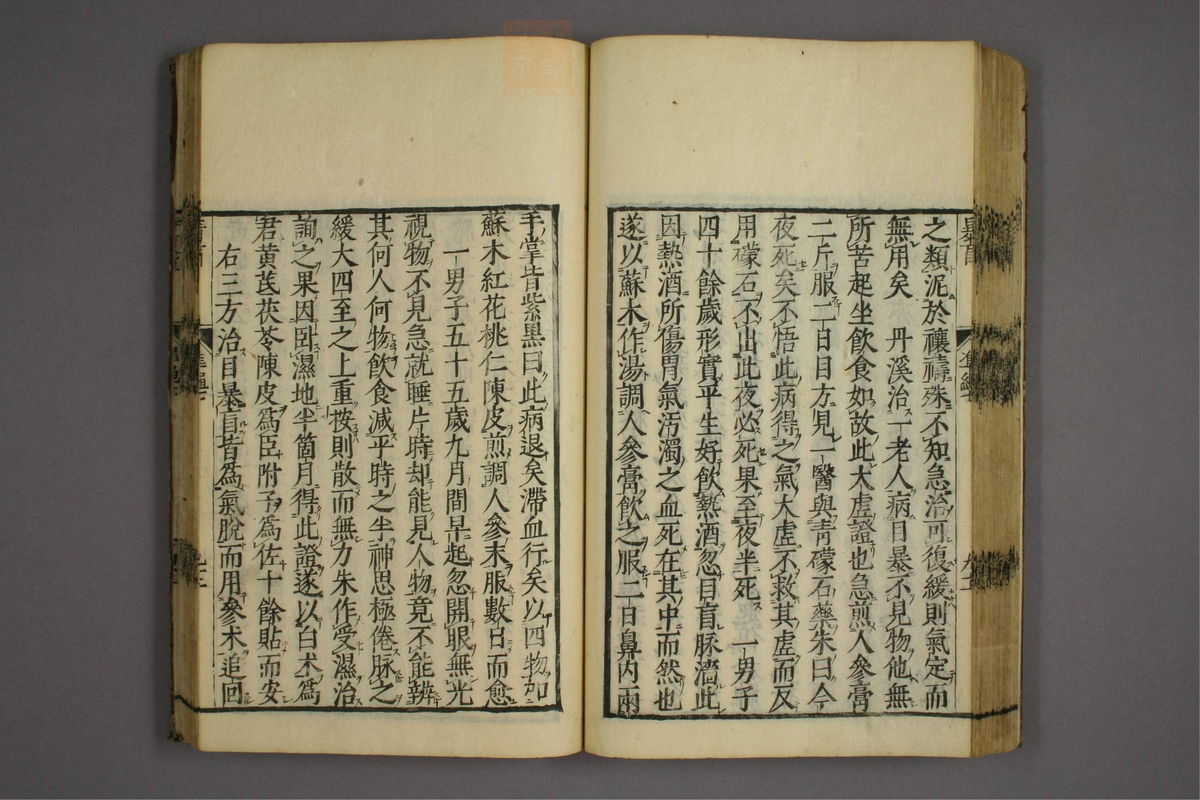 之類泥於禳禱殊不知急治可復緩則氣定而
無用矣　丹溪治一老人病目暴不見物他無
所苦起坐飲食如故此大虛證也急煎人參膏
二斤服二日目方見一醫與青礞石藥朱曰今
夜死矣不悟此病得之氣大虛不救其虛而反
用礞石不出此夜必死果至夜半死　一男子
四十餘歲形實平生好飲熱酒忽目盲脉濇此
因熱酒所傷胃氣汚濁之血死在其中而然也
遂以蘇木作湯調人參膏飲之服二日鼻內兩
手掌皆紫黑曰此病退矣滯血行矣以四物加
蘇木紅花桃仁陳皮煎調人參末服數日而愈
一男子五十五歲九月間早起忽開眼無光
視物不見急就睡片時却能見人物竟不能辨
其何人何物飲食減平時之半神思極倦脉之
緩大四至之上重按則散而無力朱作受濕治
詢之果因卧濕地半箇月得此證遂以白朮爲
君黃芪茯苓陳皮爲臣附子爲佐十餘貼而安
右三方治目暴盲皆爲氣脫而用參朮追回